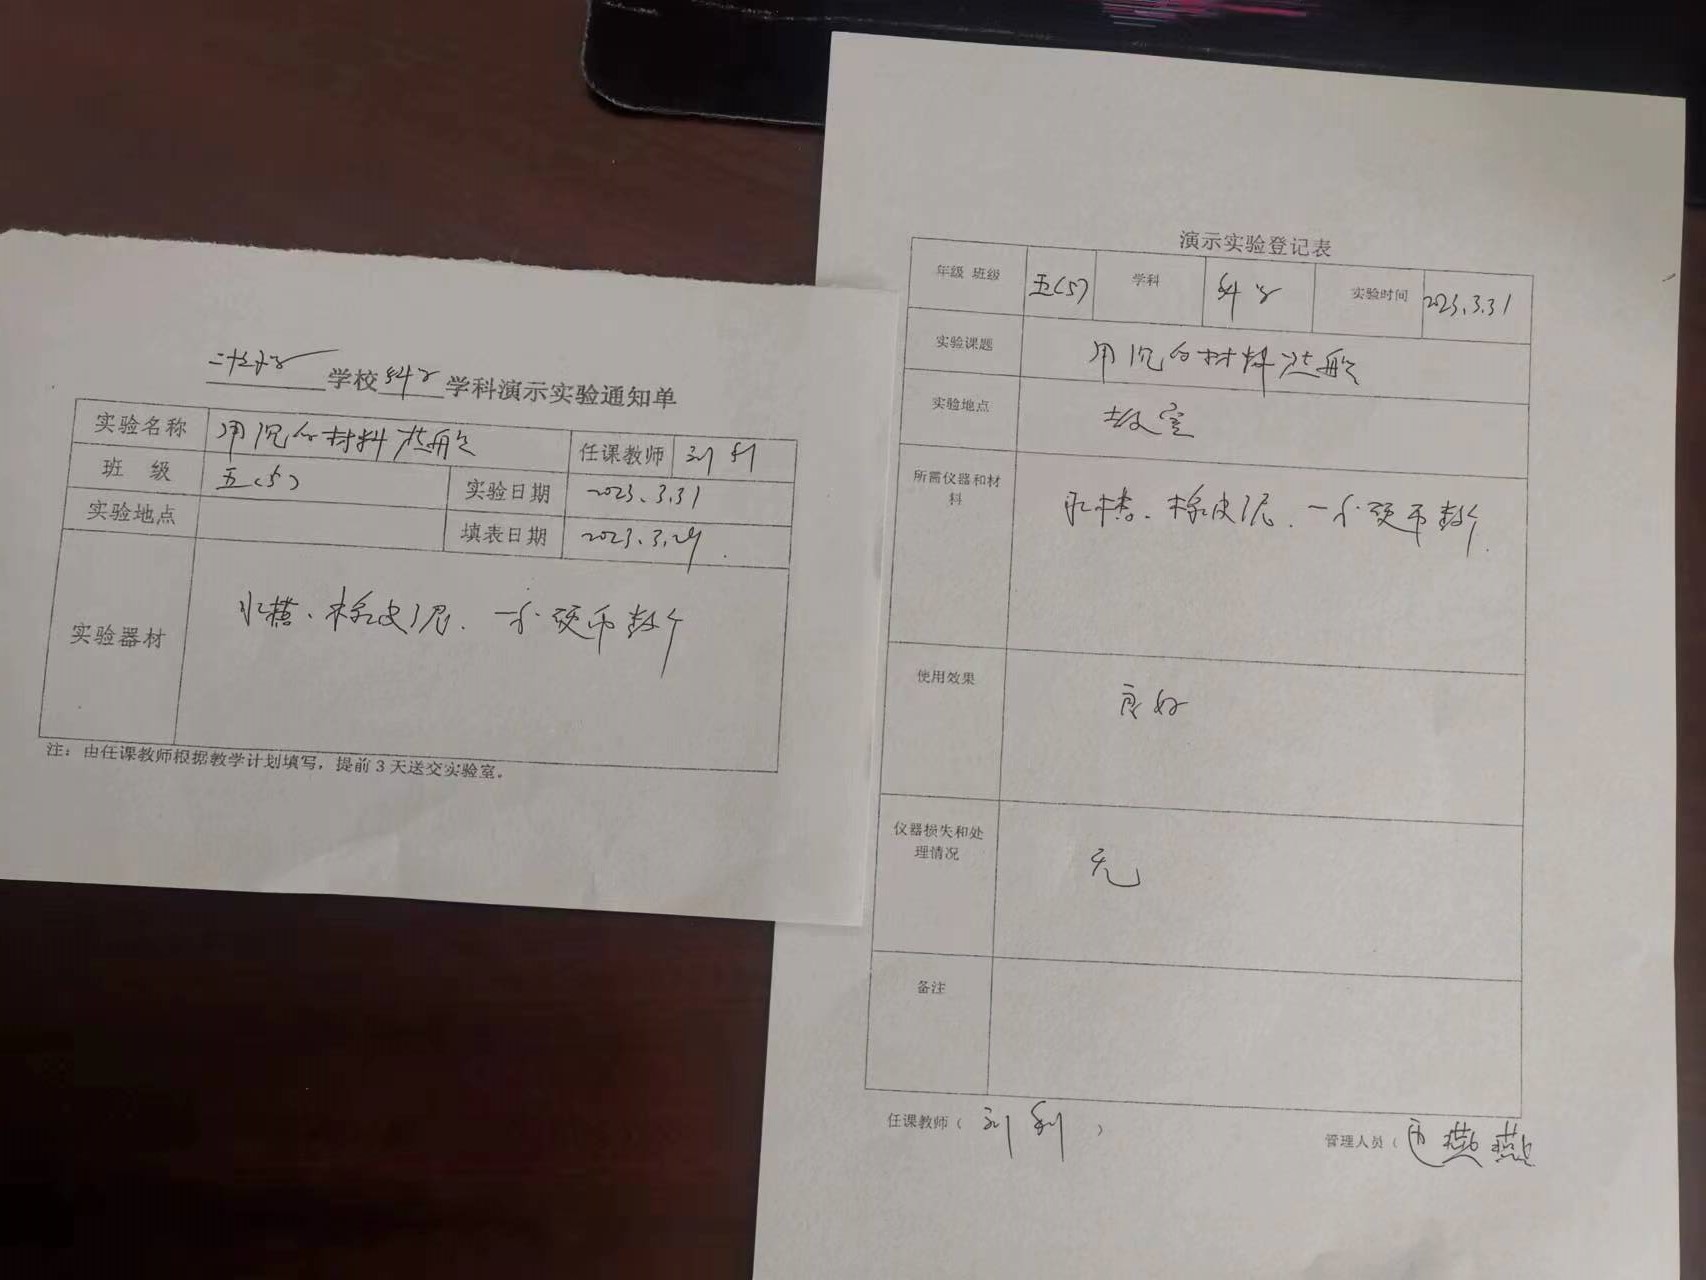 学校 科学 学科演示实验通知单
实验名称 用沉的材料造船 任课教师 刘利
班 级 五(5) 实验日期 2023.3.31
实验地点 填表日期 2023.3.29.
实验器材 水槽、橡皮泥、一个硬币数个
注:由任课教师根据教学计划填写,提前3天送交实验室。
演示实验登记表
年级 班级 五(5) 学科 科学 实验时间 2023.3.31
实验课题 用沉的材料造船
实验地点 教室
所需仪器和材
料
水槽、橡皮泥、一个硬币数个.
使用效果 良好
仪器损失和处
理情况
无
备注
任课教师( 刘利 )
管理人员( 燕燕